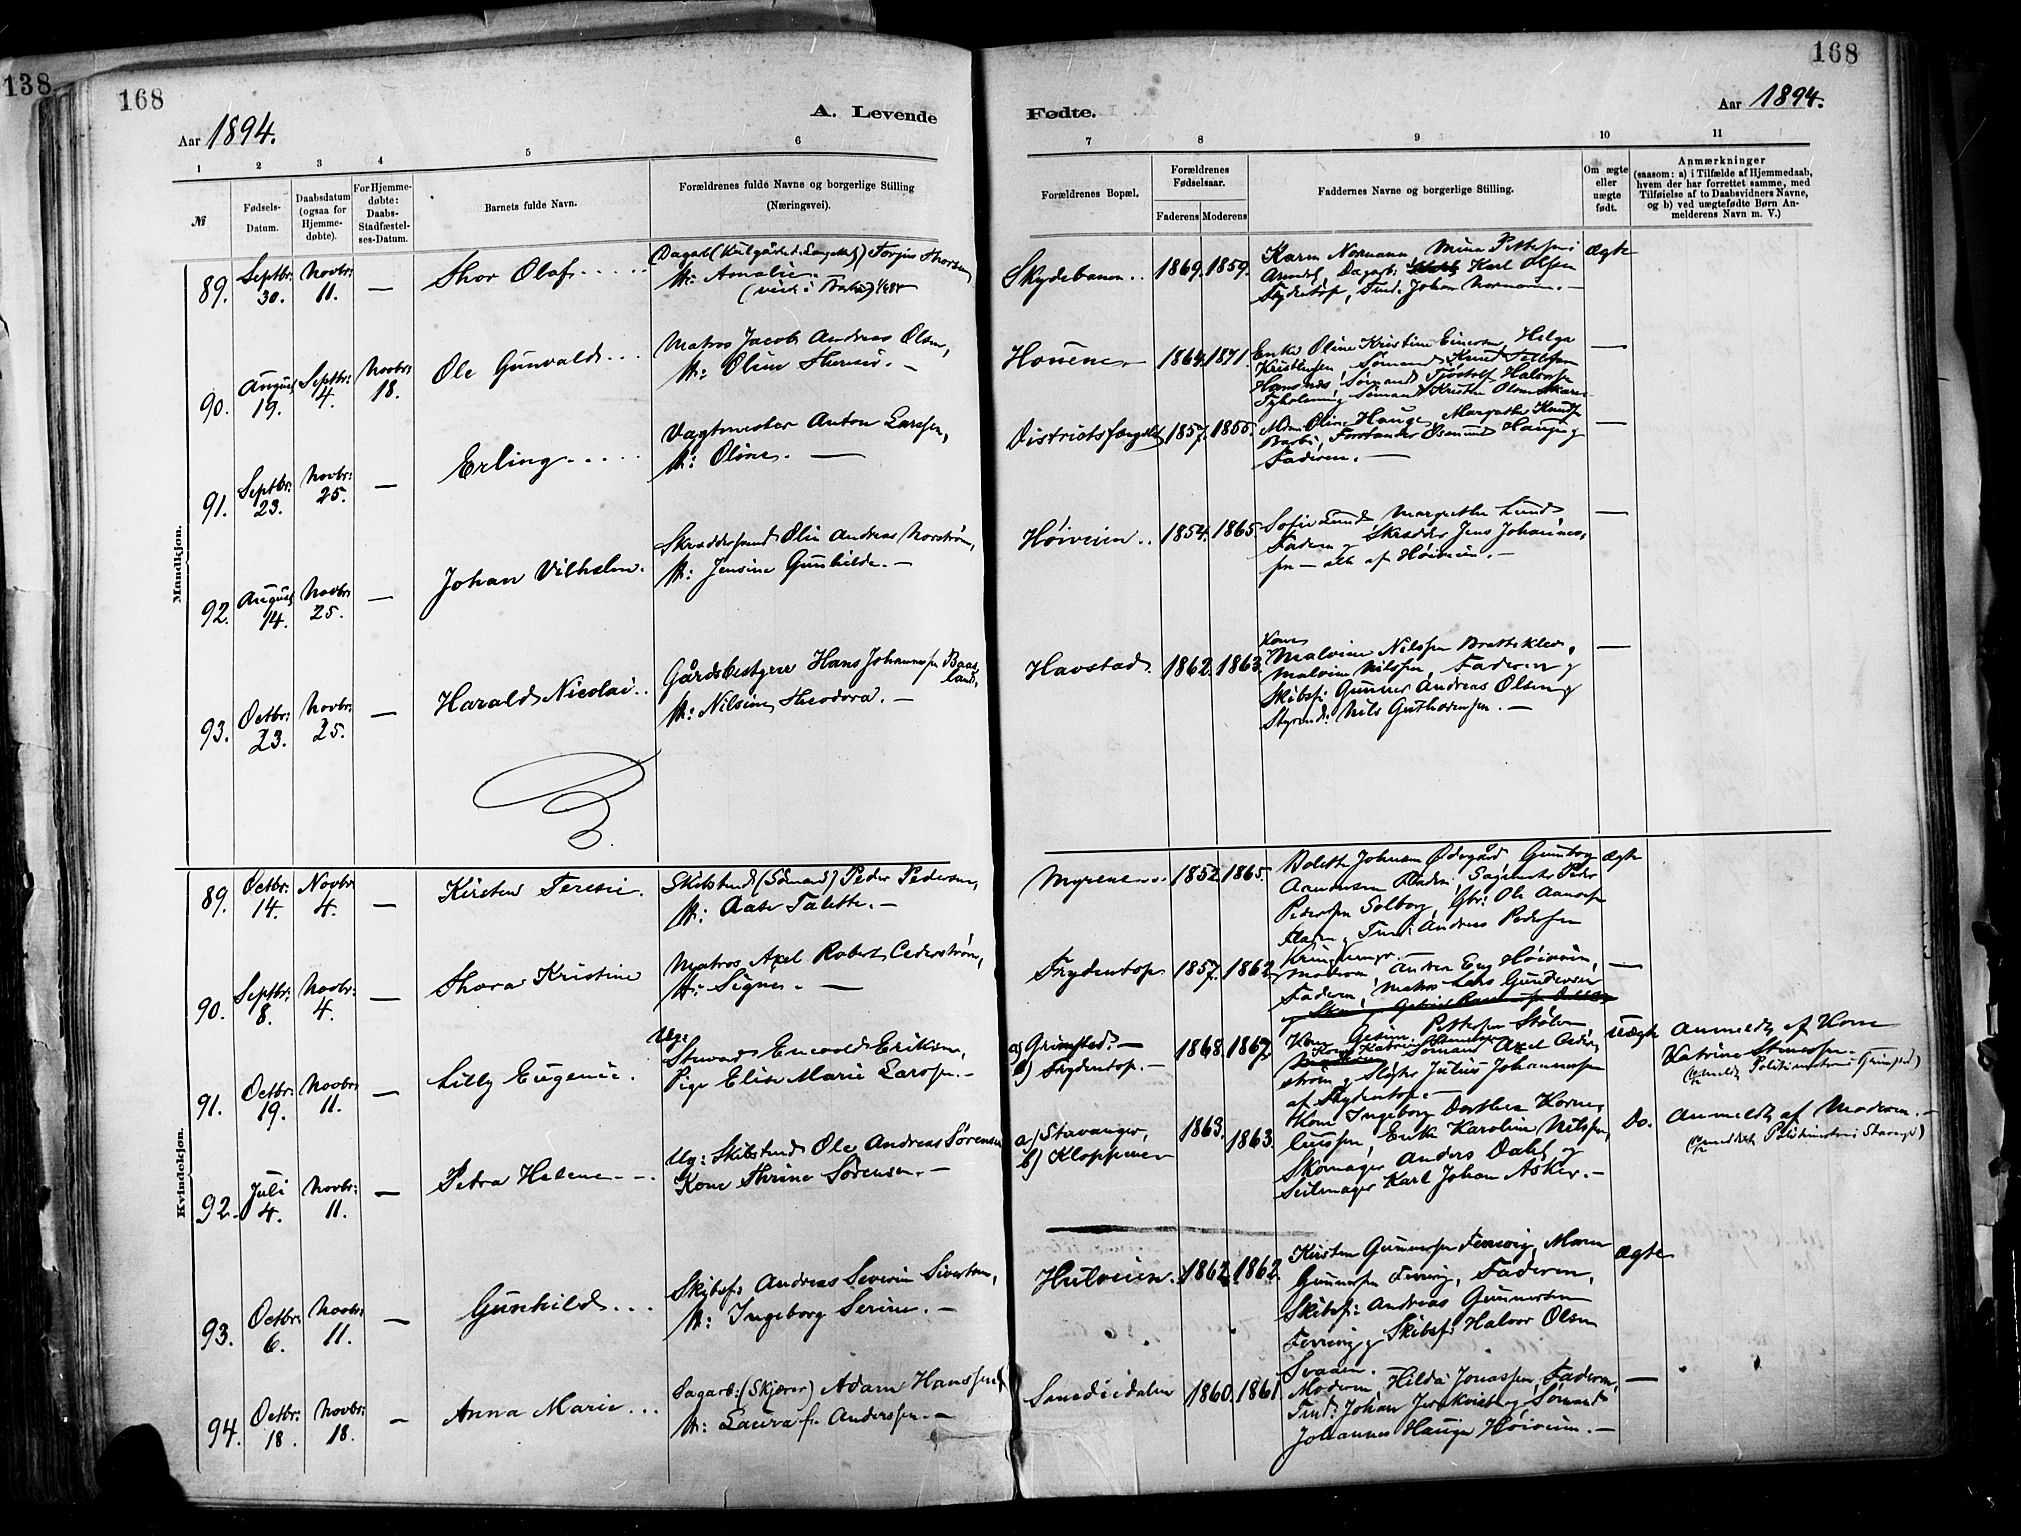 138
168
168
Aar 1894.
A. Levende
Fødte.
Aar 1894.
1
2
3
4
5
6
7
8
9
10
11
№
Fødsels-
Datum.
Daabsdatum
(ogsaa for
Hjemme-
døbte).
For Hjemme-
døbte:
Daabs-
Stadfæstel-
ses-Datum.
Barnets fulde Navn.
Forældrenes fulde Navne og borgerlige Stilling
(Næringsvei).
Forældrenes Bopæl.
Forældrenes
Fødselsaar.
Faderens
Moderens
Faddernes Navne og borgerlige Stilling.
Om ægte
eller
uægte
født.
Anmærkninger
(saasom: a) i Tilfælde af Hjemmedaab,
hvem der har forrettet samme, med
Tilføielse af to Daabsvidners Navne,
og b) ved uægtefødte Børn An-
melderens Navn m. V.)
Mandkjøn.
89.
Septbr:
30.
Novbr:
11.
—
Thor Olaf
Torjus Thorsen
H: Amalie.
Skydebanen
1869.
1859.
Karen Normann
Arendal, Dagarb: Karl Olsen
Frydentop, Tind: Johan Normann. —
Ægte
90.
August
19.
Septbr:
4.
Novbr:
18.
Ole Gunvald
Matros Jacob Andreas Olsen,
H: Oline
Houene
1864.
1871.
Enke Oline Kristine Einersen, Helga
Kristensen, Sømand Knud Tellefsen
—
91.
Septbr:
23.
Novbr:
25.
—
Erling
Vagtmester Anton Larssen,
H: Oline. —
Districtsfængslet
1857.
1855.
Oline Hauge, Margethe Knudsen
Barbu, Forstander Hauge og
Faderen. —
—
92.
August
14.
Novbr:
25.
—
Johan Vilhelm.
Skræddersvend Olin Andreas Norstrøm,
H: Jensine Gunhilde. —
Høiveien
1854.
1865.
Sofie Lund, Margrethe Lund
Faderen og Skræder Jens Johannes-
sen — alle af Høiveien. —
—
93.
Octbr:
23.
Novbr:
25.
—
Harald Nicolai
Gårdsbestyrer Hans Johannessen Baas-
land,
H: Nilsine Theodora. —
Havstad
1862.
1863.
Kone
Malvine Nilssen Bratteklev,
Malvine Nilssen, Faderen og
Skibsf: Gunner Andreas Olsen og
Styrmd: Nils Guthormsen. —
—
Kvindekjøn.
89.
Octbr:
14.
Novbr:
4.
—
Kirsten Teresie.
Skibstmd (Sømand) Peder Pedersen,
H: Aase Talette. —
Myrene
1852.
1865.
Bolette Johnsen Ødegård, Gunborg
Pedersen Solborg, Gbr: Ole Aanonsen
og Tind: Andreas Pedersen
Ægte
90.
Septbr:
8.
Novbr:
4.
—
Thora Kristine
Matros Axel Robert Cederstrøm,
H: Signe. —
Frydentop
1857.
1862.
Moderen, Andrea Eng Høiveien,
Faderen, Matros Lars Gundersen
—
91.
Octbr:
19.
Novbr:
11.
—
Lilly Eugenie.
Ug:
Steward Enevold Eriksen,
Pige Elise Marie Larssen. —
a) Grimsted. —
b) Frydentop. —
1868.
1867.
Kone Pettersen
Sømand Axel Ceder-
strøm og Slagter Julius Johannessen
af Frydentop. —
Uægte
Anmeldt af Kone
Katrine Stenersen.
(anmeldt Politimesteren i Grimsted)
92.
Juli
4.
Novbr:
11.
—
Petra Helene
Ug: Skibstmd Ole Andreas Sørensen
Kone Thrine Sørensen. —
a) Stavanger,
b) Kloppene
1863.
1863.
Kone Ingeborg Dorthea Korne-
liussen, Enke Karoline Nilssen,
Skomager Anders Dahl og
Seilmager Karl Johan Asker. —
Do.
Anmeldt af Moderen. —
(anmeldt Politimesteren i Stavanger)
93.
Octbr:
6.
Novbr:
11.
—
Gunhild
Skibsf: Andreas Severin Sivertsen,
H: Ingeborg Serine. —
Hulveien.
1862.
1862.
Kirsten Gunnersen Fervig, Maren
Gunnersen Fervig, Faderen,
Skibsf: Andreas Gunnersen
Fervig og Skibsf: Halvor Olsen
Svaaen.
Ægte
94.
Octbr:
18.
Novbr:
18.
—
Anna Marie
Sagarb: (Skjærer) Adam Hanssen
H: Laura f. Anderssen. —
Smedsidalen
1860.
1861.
Moderen, Hilda Jonassen, Faderen,
Tind: Johan og Sømand
Johannes Hauge Høiveien. —
—